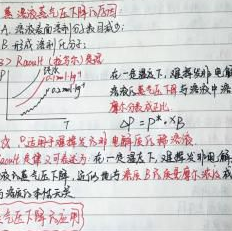 蒸气压下降的原因
A. 溶液表面溶剂分子数目减少;
B. 形成溶剂化分子;
3> Raoult (拉乌尔) 定律
P
0.1mol·kg⁻¹
0.2mol·kg⁻¹
T
在一定温度下, 难挥发非电解
溶液的蒸气压下降与溶液中溶
摩尔分数成正比
ΔP = P*·XB
只适用于难挥发非电解质稀溶液
Raoult定律又可表述为: 在一定温度下, 难挥发非电解
液的蒸气压下降, 近似地与溶液B的质量摩尔浓度成
与溶质的本性无关
蒸气压下降的应用